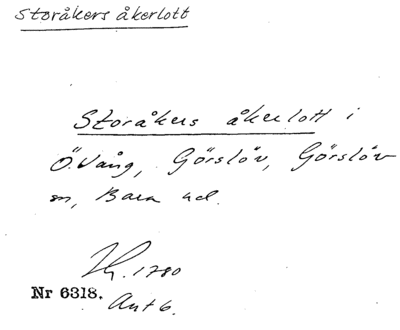 Storåkers åkerlott
Storåkers åkerlott i
Ö.vång, Görslöv, Görslöv
sn, Bara hd.
1780
Nr 6318.
Akt 6.